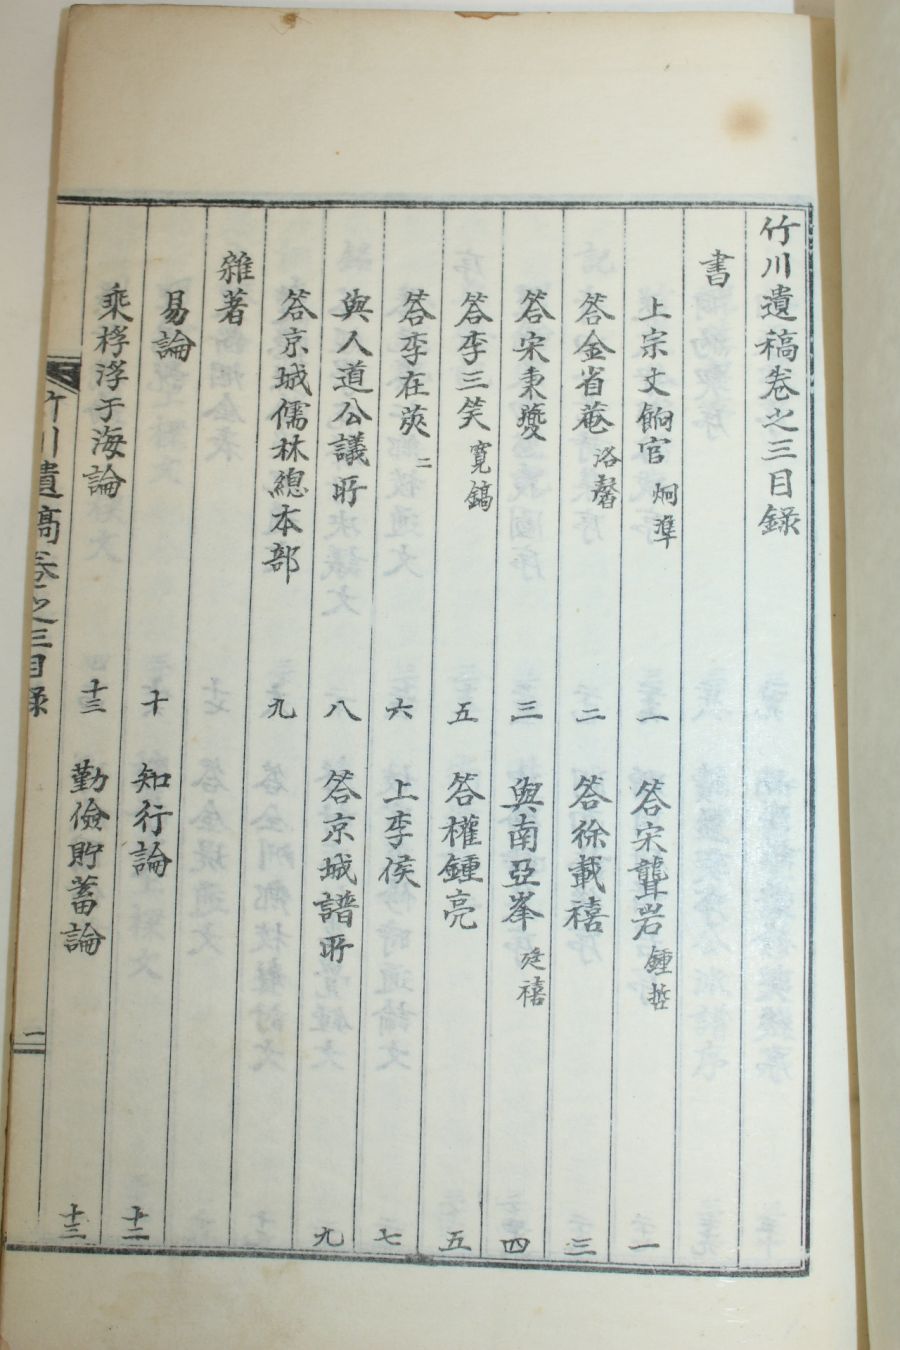 竹川遺稿卷之三目錄
書
上宗文餉官 炯準 一 答宋聾岩 鍾哲 一
答金省菴 洛馨 二 答徐載禧 三
答宋秉夔 三 與南亞峯 廷禧 四
答李三笑 寬鎬 五 答權鍾亮 五
答李在茰 二 六 上李侯 七
與人道公議所 八 答京城譜所 九
答京城儒林總本部 九
雜著
易論 十 知行論 十二
乘桴浮于海論 十三 勤儉貯蓄論 十三
竹川遺稿卷之三目錄 一